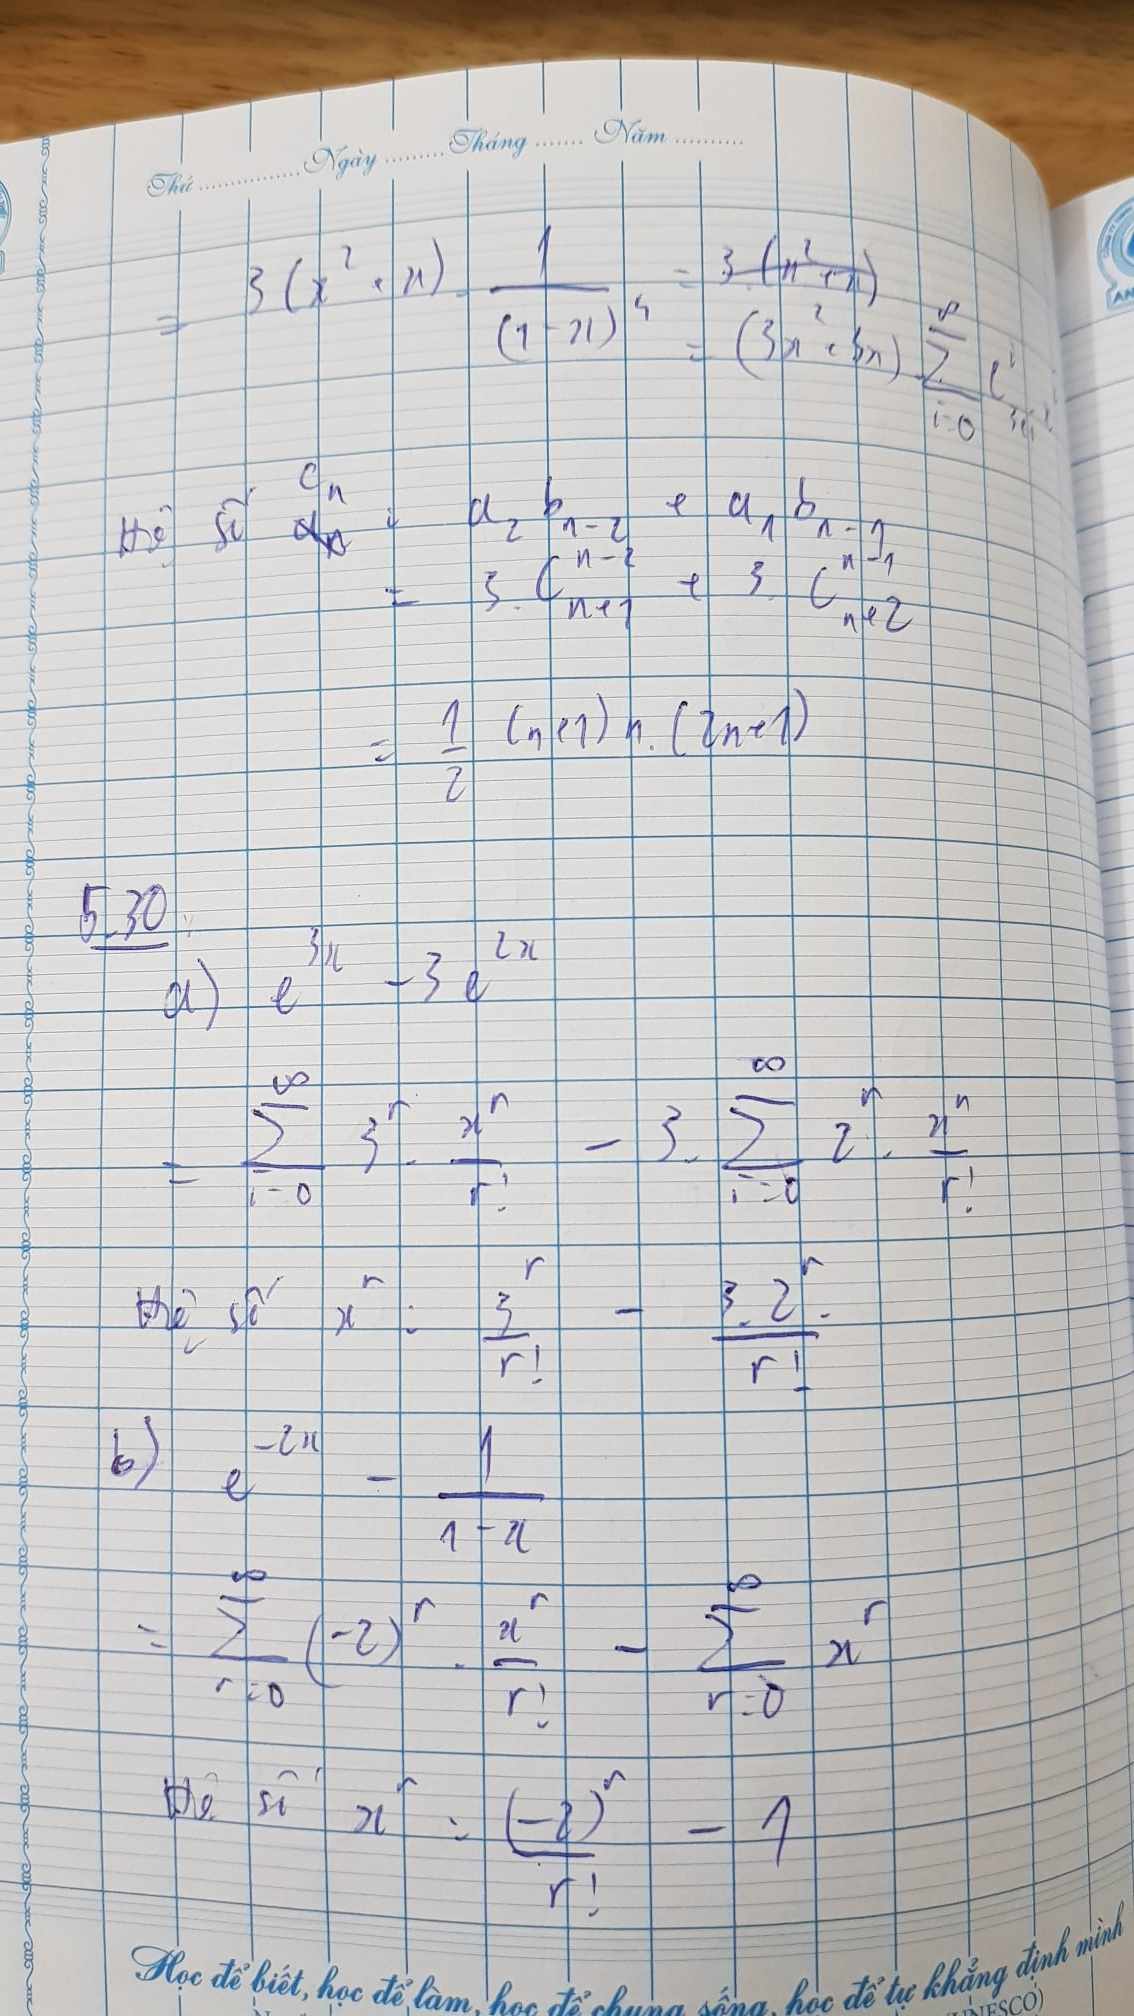 Thứ ................ Ngày ......... Tháng ....... Năm ..........
= 3(x² + x) . 1/(1-x)⁴ = 3.(x²+x)
= (3x² + 3x) . ∑_{i=0}^{∞} C^{i}_{3+i}
Hệ số c_n = a_2 b_{n-2} + a_1 b_{n-1}
= 3. C_{n+1}^{n-2} + 3. C_{n+2}^{n-1}
= 1/2 (n+1) n. (2n+1)
5.30:
a) e^{3x} - 3e^{2x}
= ∑_{i=0}^{∞} 3^r . x^r/r! - 3. ∑_{i=0}^{∞} 2^r . x^r/r!
Hệ số x^r : 3^r/r! - 3.2^r/r!
b) e^{-2x} - 1/(1-x)
= ∑_{r=0}^{∞} (-2)^r . x^r/r! - ∑_{r=0}^{∞} x^r
Hệ số x^r = (-2)^r/r! - 1
Học để biết, học để làm, học để chung sống, học để tự khẳng định mình
(UNESCO)